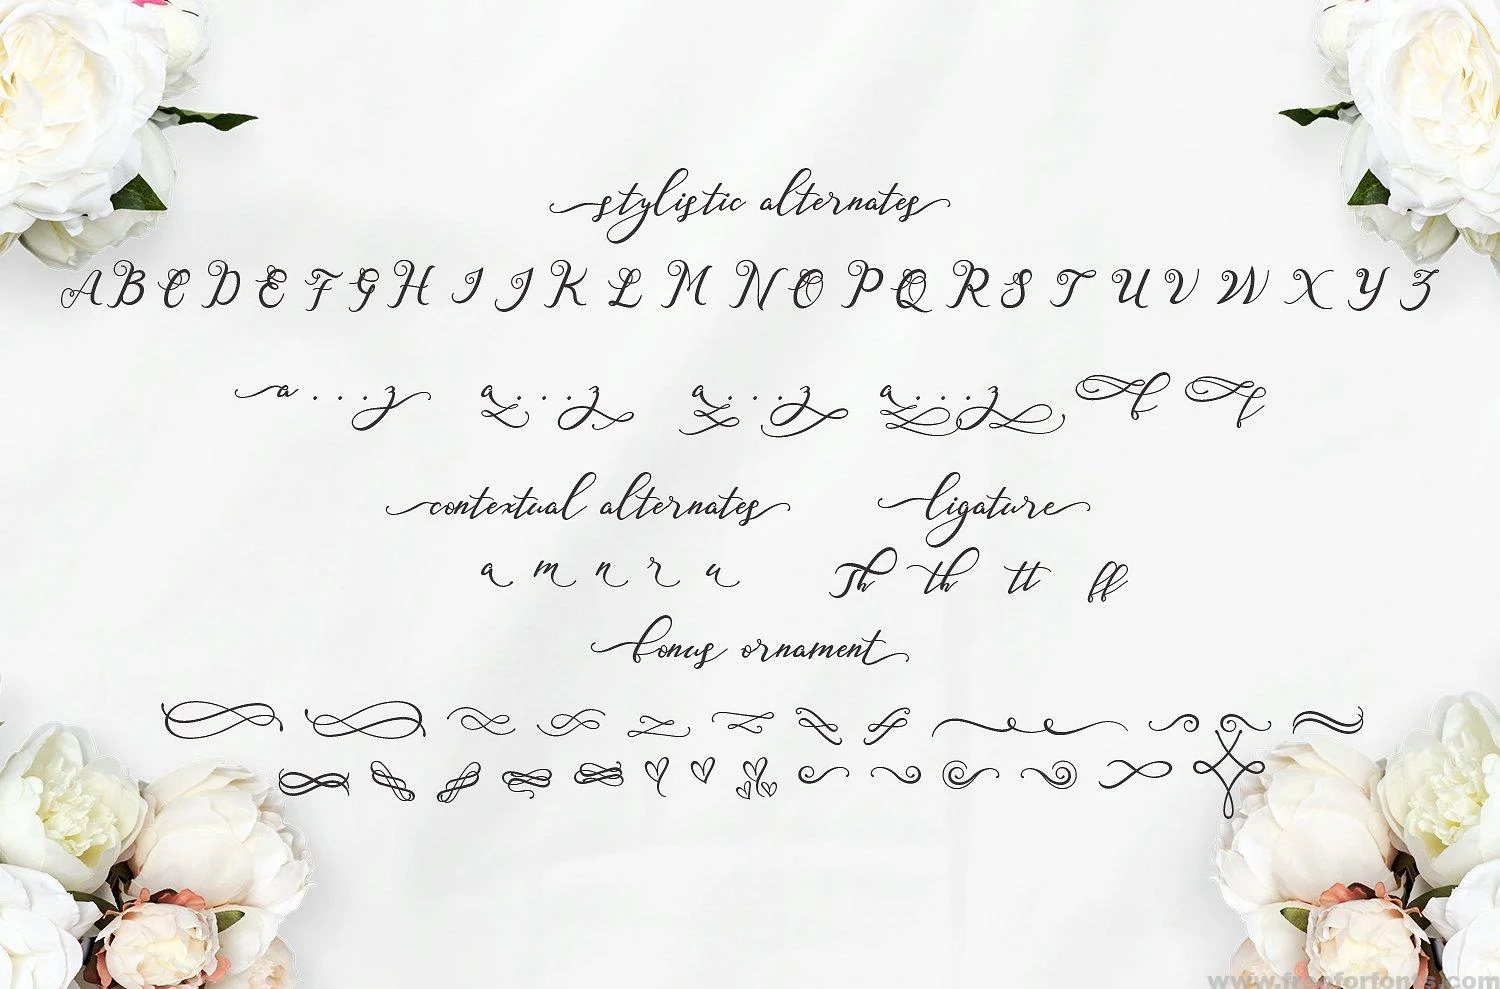 stylistic alternates
A B C D E F G H I J K L M N O P Q R S T U V W X Y Z
a...z a...z a...z a...z f f
contextual alternates ligature
a m n r u Th th tt ff
bonus ornament
www.freeforfonts.com